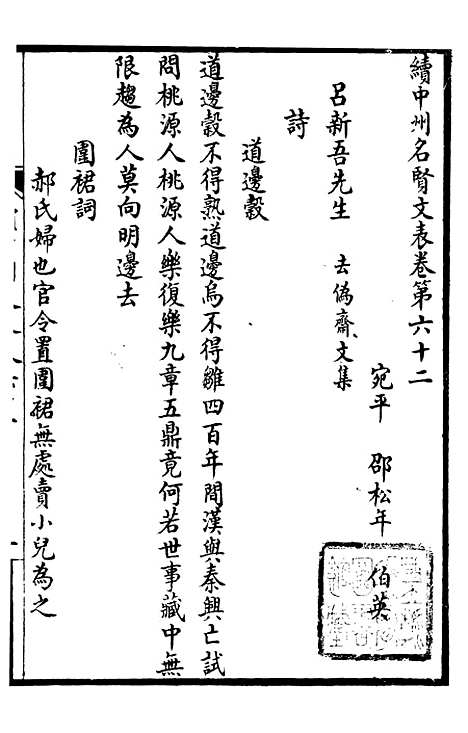 續中州名賢文表卷第六十二
宛平 邵松年 伯英
呂新吾先生 去偽齋文集
詩
道邊穀
道邊穀不得熟道邊烏不得雛四百年間漢與秦興亡試
問桃源人桃源人樂復樂九章五鼎竟何若世事藏中無
限趨為人莫向明邊去
圍裙詞
郝氏婦也官令置圍裙無處賣小兒為之